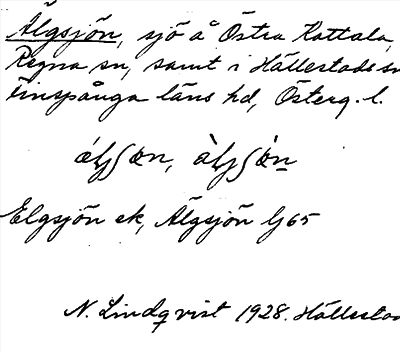 Älgsjön, sjö å Östra Kattala,
Regna sn, samt i Hällestads sn
Finspånga läns hd, Österg. l.
Elgsjön ek, Älgsjön Lj 65
N. Lindqvist 1928. Hällestad